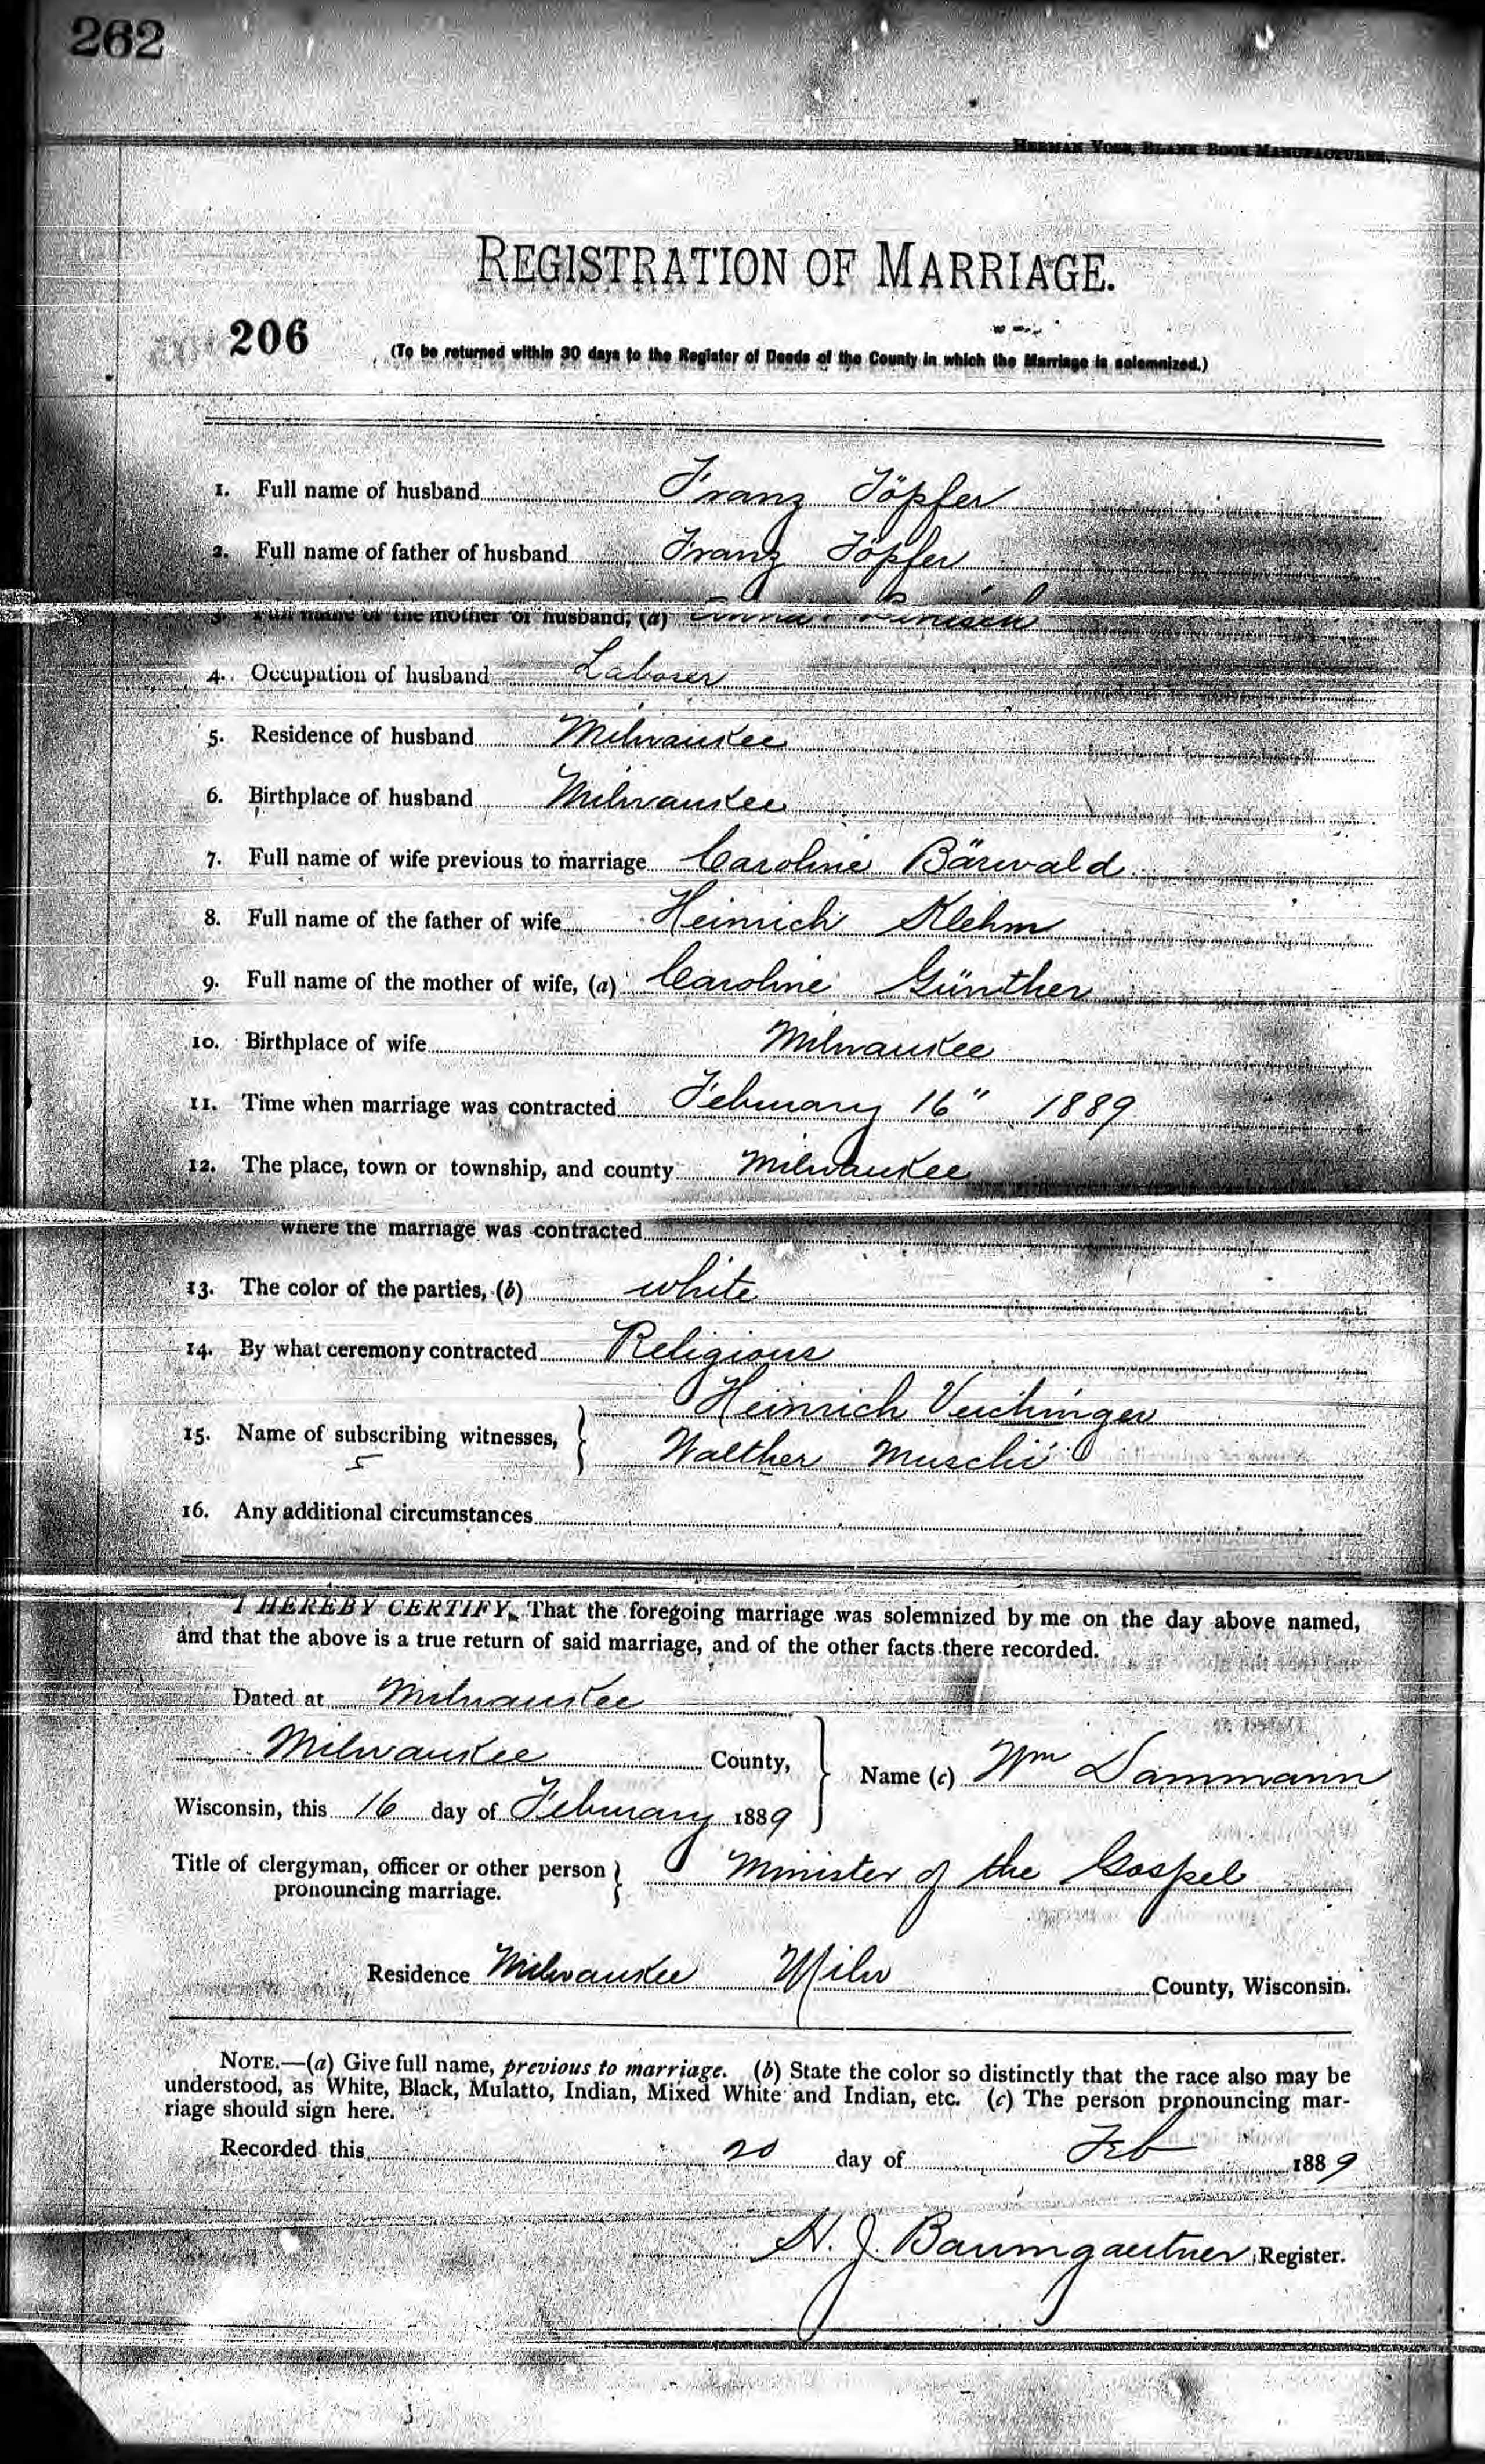 262
HERMAN VOSS, BLANK BOOK MANUFACTURER.
REGISTRATION OF MARRIAGE.
206
(To be returned within 30 days to the Register of Deeds of the County in which the Marriage is solemnized.)
1. Full name of husband Franz Töpfer
2. Full name of father of husband Franz Töpfer
3. Full name of the mother of husband, (a) Anna
4. Occupation of husband Laborer
5. Residence of husband Milwaukee
6. Birthplace of husband Milwaukee
7. Full name of wife previous to marriage Caroline Bärwald
8. Full name of the father of wife Heinrich Klehm
9. Full name of the mother of wife, (a) Caroline Günther
10. Birthplace of wife Milwaukee
11. Time when marriage was contracted February 16" 1889
12. The place, town or township, and county Milwaukee
where the marriage was contracted
13. The color of the parties, (b) white
14. By what ceremony contracted Religious
Heinrich Veichinger
15. Name of subscribing witnesses,
Walther Muschi
5
16. Any additional circumstances
I HEREBY CERTIFY, That the foregoing marriage was solemnized by me on the day above named,
and that the above is a true return of said marriage, and of the other facts there recorded.
Dated at Milwaukee
Milwaukee County,
Name (c) Wm Dammann
Wisconsin, this 16 day of February 1889
Title of clergyman, officer or other person Minister of the Gospel
pronouncing marriage.
Residence Milwaukee Milw County, Wisconsin.
NOTE.—(a) Give full name, previous to marriage. (b) State the color so distinctly that the race also may be
understood, as White, Black, Mulatto, Indian, Mixed White and Indian, etc. (c) The person pronouncing mar-
riage should sign here.
Recorded this 20 day of Feb 1889
A. J. Baumgaertner, Register.